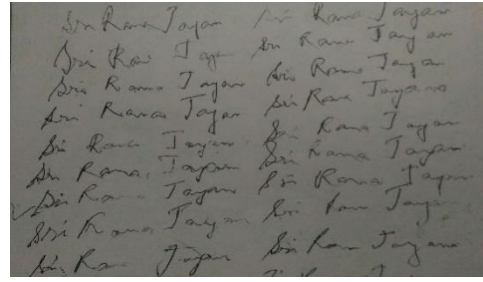 Sri Rama Jayam Sri Rama Jayam
Sri Ram Jayam Sri Rama Jayam
Sri Rama Jayam Sri Rama Jayam
Sri Rama Jayam Sri Rama Jayam
Sri Rama Jayam Sri Rama Jayam
Sri Rama Jayam Sri Rama Jayam
Sri Rama Jayam Sri Rama Jayam
Sri Rama Jayam Sri Ram Jayam
Sri Ram Jayam Sri Ram Jayam